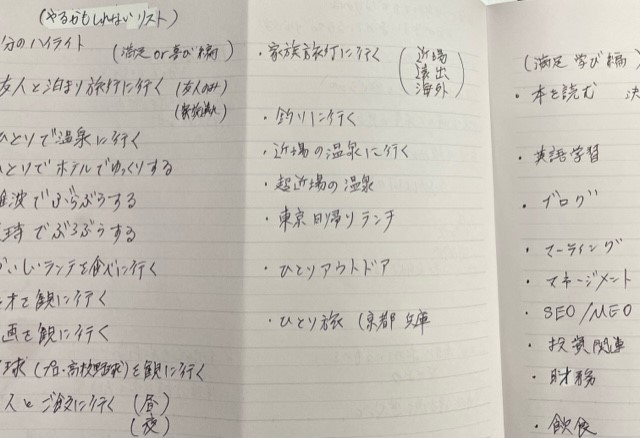 (やるかもしれないリスト)
分のハイライト (満足 or 喜び編)
友人と泊まり旅行に行く (友人のみ)
ひとりで温泉に行く
ひとりでホテルでゆっくりする
波でぶらぶらする
でぶらぶらする
いしいランチを食べに行く
オを観に行く
画を観に行く
球 (プロ・高校野球) を観に行く
スとご飯に行く (昼)
(夜)
・家族旅行に行く (近場
遠出
海外)
・釣りに行く
・近場の温泉に行く
・超近場の温泉
・東京日帰りランチ
・ひとりアウトドア
・ひとり旅 (京都 兵庫
(満足 学び編)
・本を読む
・英語学習
・ブログ
・マーケティング
・マネージメント
・SEO/MEO
・投資関連
・財務
・飲食